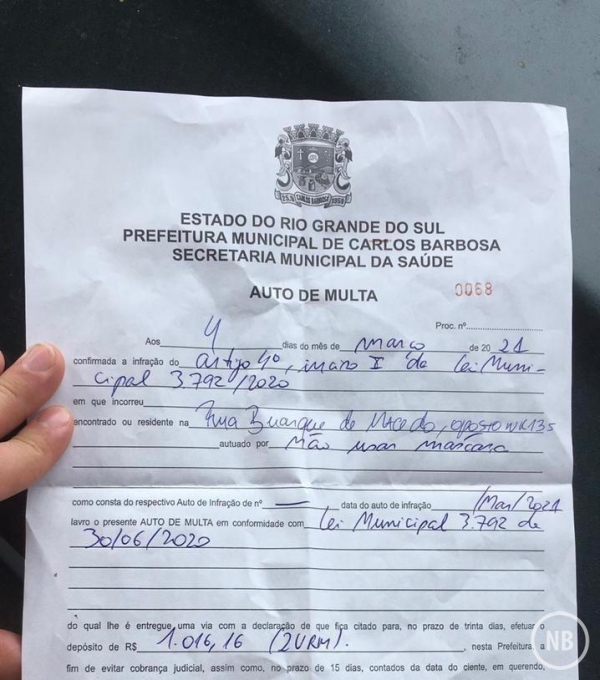 25.9 CARLOS BARBOSA 1959
ESTADO DO RIO GRANDE DO SUL
PREFEITURA MUNICIPAL DE CARLOS BARBOSA
SECRETARIA MUNICIPAL DA SAÚDE
AUTO DE MULTA 0068
Proc. nº
Aos 4 dias do mês de março de 2021
confirmada a infração do artigo 4º, inciso I da Lei Muni-
cipal 3.792/2020
em que incorreu
encontrado ou residente na Rua Buarque de Macedo, oposto nº 135
autuado por não usar máscara
como consta do respectivo Auto de Infração de nº — data do auto de infração /Mar/2021
lavro o presente AUTO DE MULTA em conformidade com Lei Municipal 3.792 de
30/06/2020
do qual lhe é entregue uma via com a declaração de que fica citado para, no prazo de trinta dias, efetuar o
depósito de R$ 1.016,16 (2URM). , nesta Prefeitura, a
fim de evitar cobrança judicial, assim como, no prazo de 15 dias, contados da data do ciente, em querendo,
NB